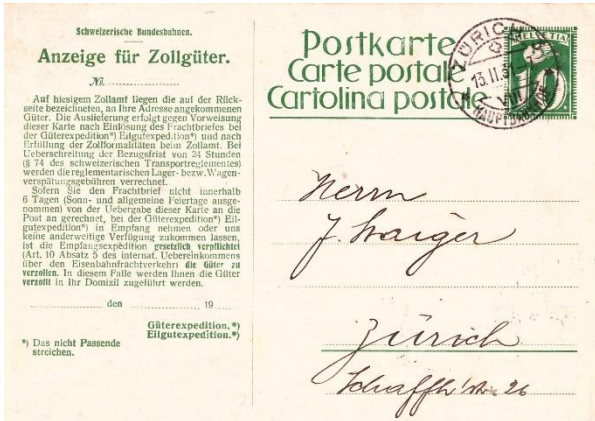 Schweizerische Bundesbahnen.
Anzeige für Zollgüter.
No.
Auf hiesigem Zollamt liegen die auf der Rück-
seite bezeichneten, an Ihre Adresse angekommenen
Güter. Die Auslieferung erfolgt gegen Vorweisung
dieser Karte nach Einlösung des Frachtbriefes bei
der Güterexpedition*) Eilgutexpedition*) und nach
Erfüllung der Zollformalitäten beim Zollamt. Bei
Ueberschreitung der Bezugsfrist von 24 Stunden
(§ 74 des schweizerischen Transportreglementes)
werden die reglementarischen Lager- bezw. Wagen-
verspätungsgebühren verrechnet.
Sofern Sie den Frachtbrief nicht innerhalb
6 Tagen (Sonn- und allgemeine Feiertage ausge-
nommen) von der Uebergabe dieser Karte an die
Post an gerechnet, bei der Güterexpedition*) Eil-
gutexpedition*) in Empfang nehmen oder uns
keine anderweitige Verfügung zukommen lassen,
ist die Empfangsexpedition gesetzlich verpflichtet
(Art. 10 Absatz 5 des internat. Uebereinkommens
über den Eisenbahnfrachtverkehr) die Güter zu
verzollen. In diesem Falle werden Ihnen die Güter
verzollt in Ihr Domizil zugeführt werden.
den 19
Güterexpedition.*)
Eilgutexpedition.*)
*) Das nicht Passende
streichen.
Postkarte
Carte postale
Cartolina postale
HELVETIA
10
ZÜRICH
13.II.
VIII
HAUPTBAHNHOF
Herrn
J. Staiger
Zürich
Schaffh'str. 26